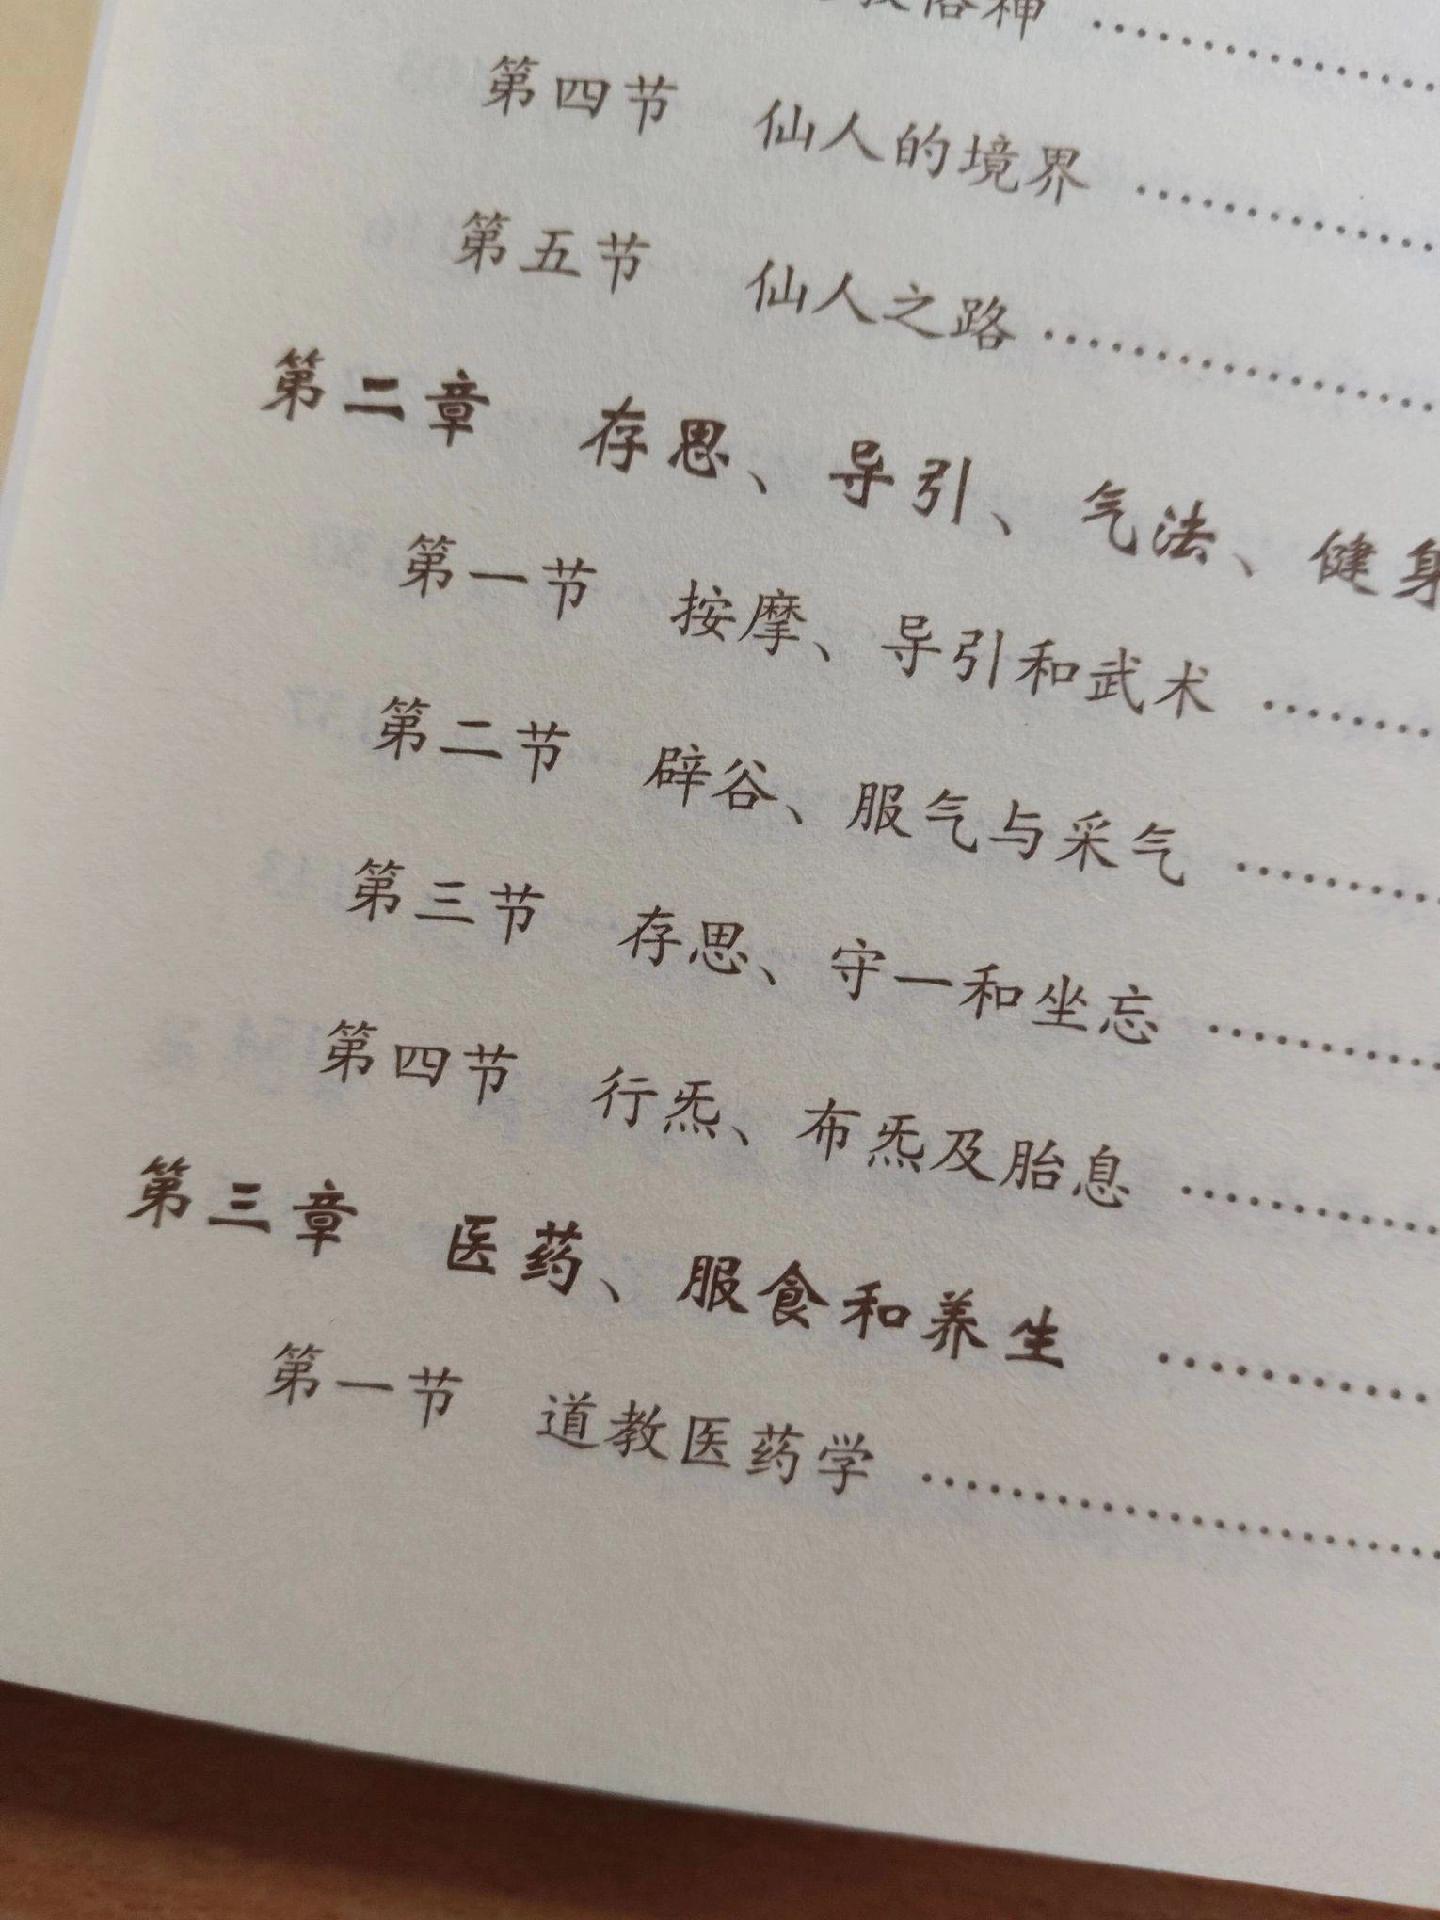 俗神 ……………
第四节 仙人的境界 ……………
第五节 仙人之路 ……………
第二章 存思、导引、气法、健身
第一节 按摩、导引和武术 ………
第二节 辟谷、服气与采气 ………
第三节 存思、守一和坐忘 ………
第四节 行炁、布炁及胎息 ………
第三章 医药、服食和养生 ………
第一节 道教医药学 ………………